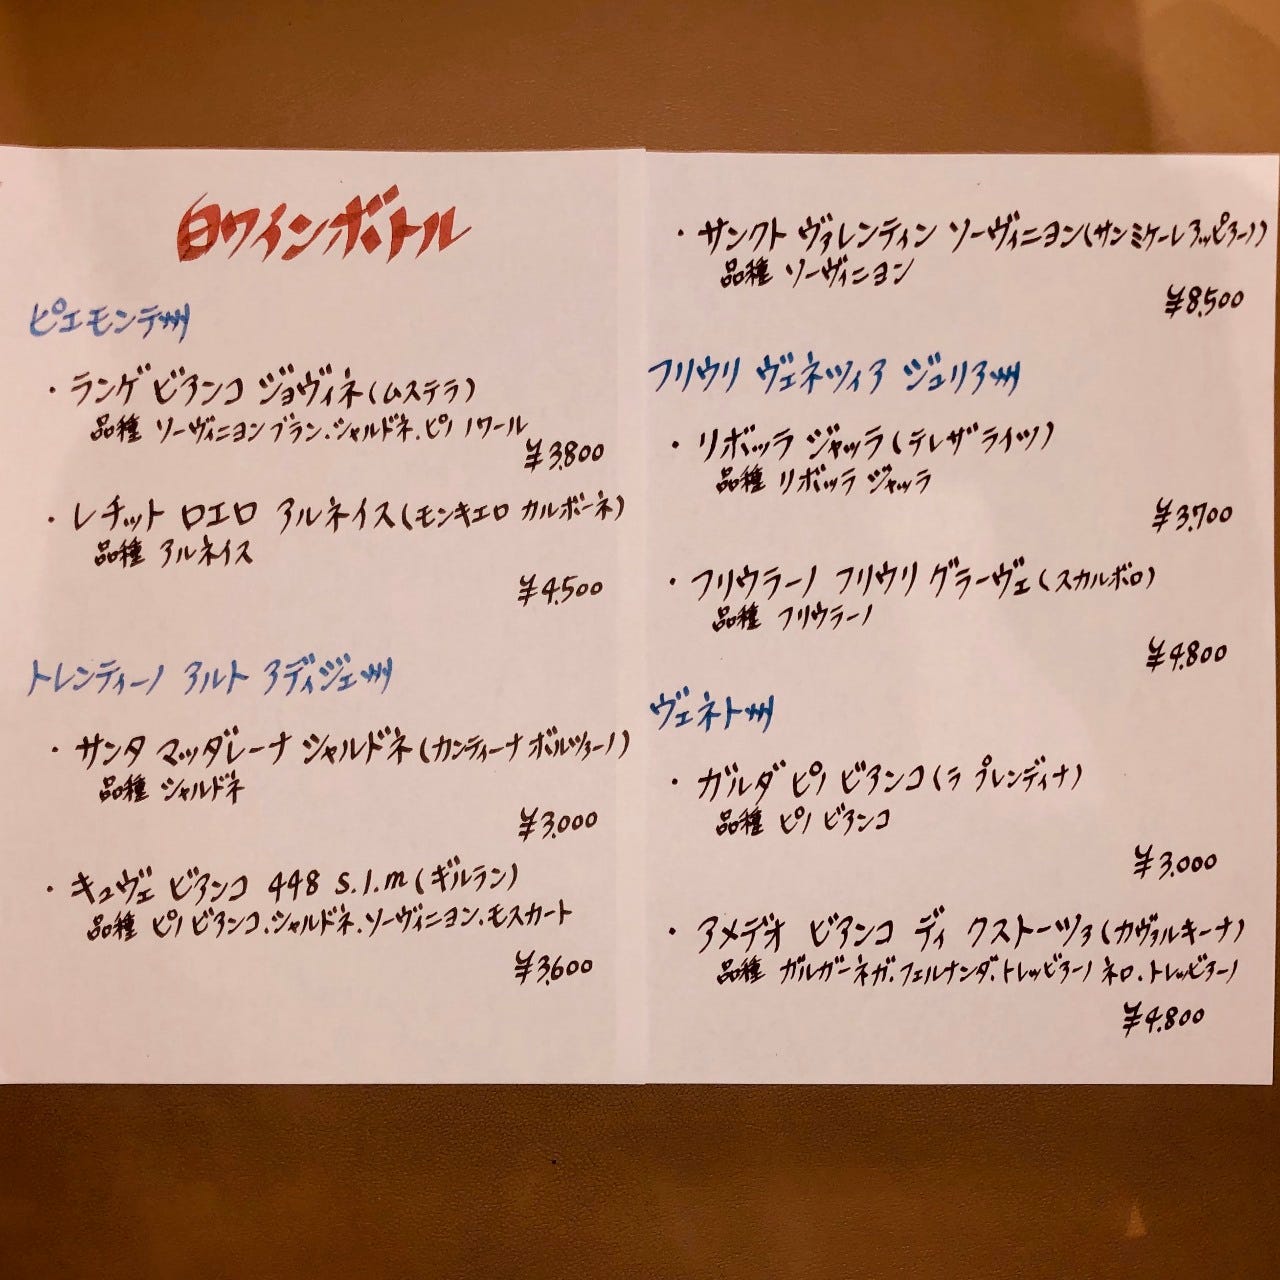 白ワインボトル
ピエモンテ州
・ランゲ ビアンコ ジョヴィネ(ムステラ)
品種 ソーヴィニヨン ブラン、シャルドネ、ピノ ノワール
¥3,800
・レチット ロエロ アルネイス(モンキエロ カルボーネ)
品種 アルネイス
¥4,500
トレンティーノ アルト アディジェ州
・サンタ マッダレーナ シャルドネ(カンティーナ ボルツァーノ)
品種 シャルドネ
¥3,000
・キュヴェ ビアンコ 448 s.l.m(ギルラン)
品種 ピノ ビアンコ、シャルドネ、ソーヴィニヨン、モスカート
¥3,600
・サンクト ヴァレンティン ソーヴィニヨン(サン ミケーレ アッピアーノ)
品種 ソーヴィニヨン
¥8,500
フリウリ ヴェネツィア ジュリア州
・リボッラ ジャッラ(テレザ ライツ)
品種 リボッラ ジャッラ
¥3,700
・フリウラーノ フリウリ グラーヴェ(スカルボロ)
品種 フリウラーノ
¥4,800
ヴェネト州
・ガルダ ピノ ビアンコ(ラ プレンディナ)
品種 ピノ ビアンコ
¥3,000
・アメデオ ビアンコ ディ クストーツァ(カヴァルキーナ)
品種 ガルガーネガ、フェルナンダ、トレッビアーノ ネロ、トレッビアーノ
¥4,800